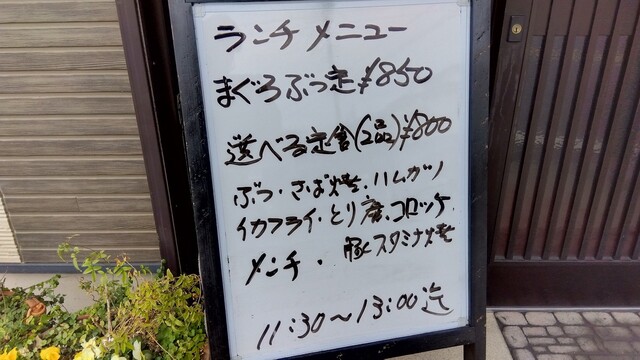 ランチメニュー
まぐろぶつ定¥850
選べる定食(2品)¥800
ぶつ・さば焼・ハムカツ
イカフライ・とり唐・コロッケ
メンチ・豚スタミナ焼
11:30〜13:00迄